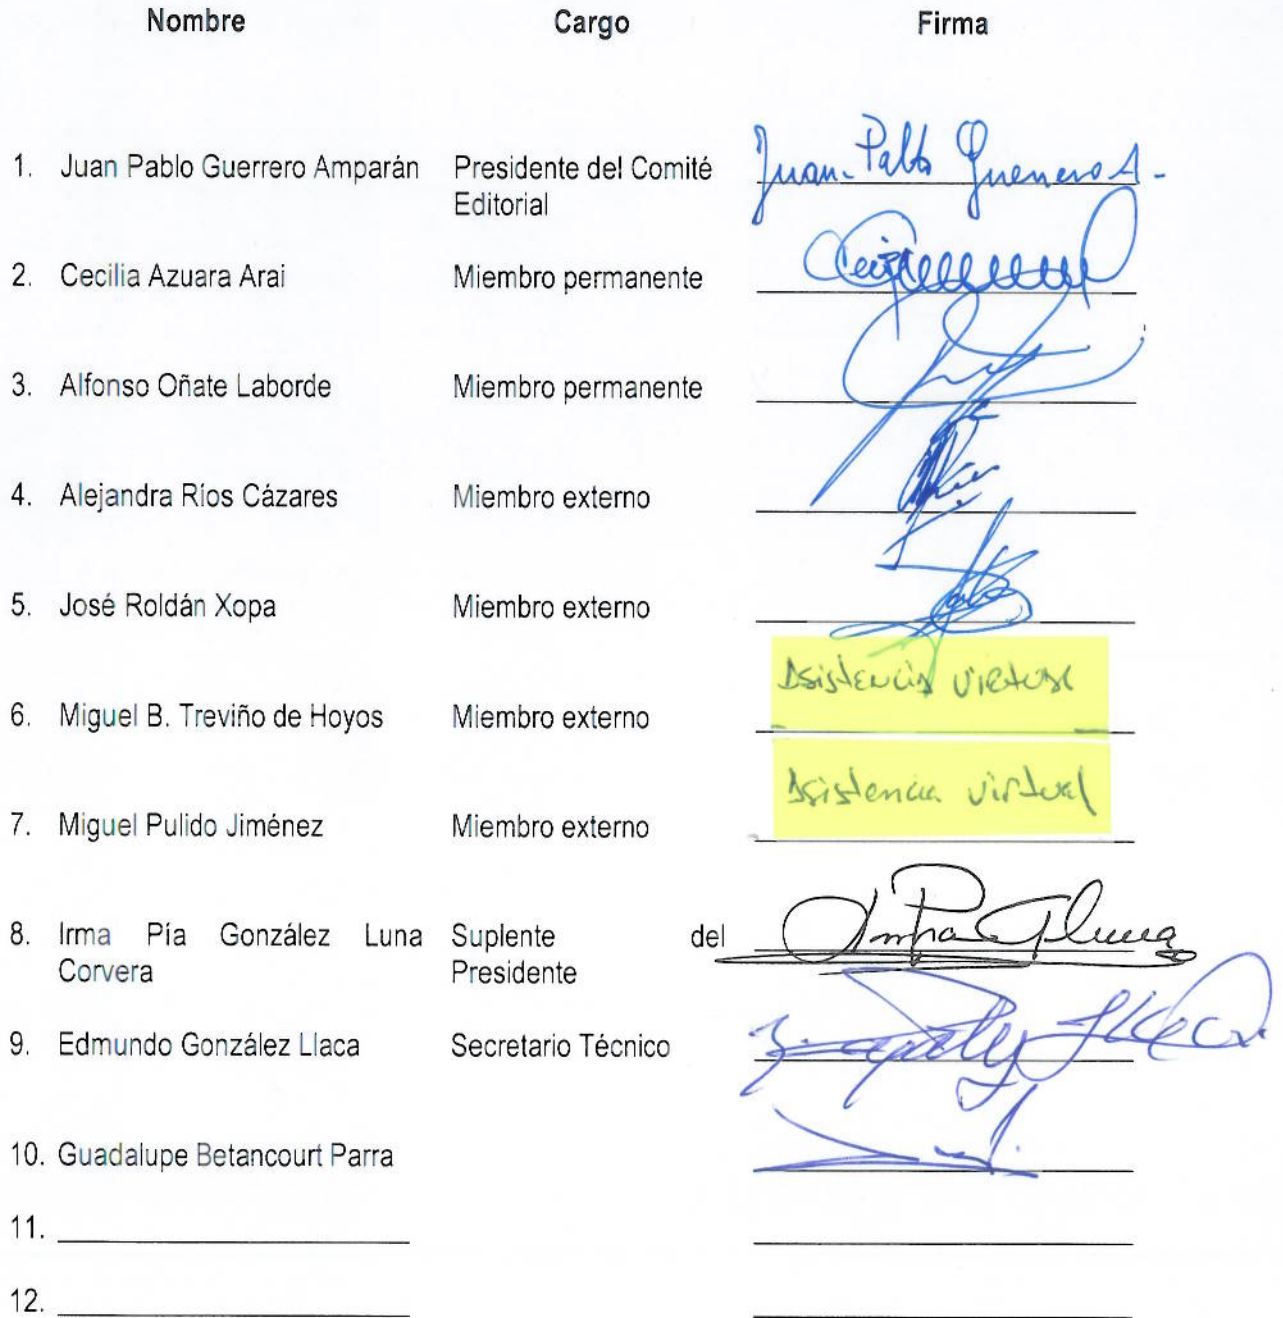 Nombre Cargo Firma
1. Juan Pablo Guerrero Amparán Presidente del Comité Juan-Pablo Guerrero A.
Editorial
2. Cecilia Azuara Arai Miembro permanente
3. Alfonso Oñate Laborde Miembro permanente
4. Alejandra Ríos Cázares Miembro externo
5. José Roldán Xopa Miembro externo
Asistencia virtual
6. Miguel B. Treviño de Hoyos Miembro externo
Asistencia virtual
7. Miguel Pulido Jiménez Miembro externo
8. Irma Pía González Luna Suplente del
Corvera Presidente
9. Edmundo González Llaca Secretario Técnico
10. Guadalupe Betancourt Parra
11.
12.